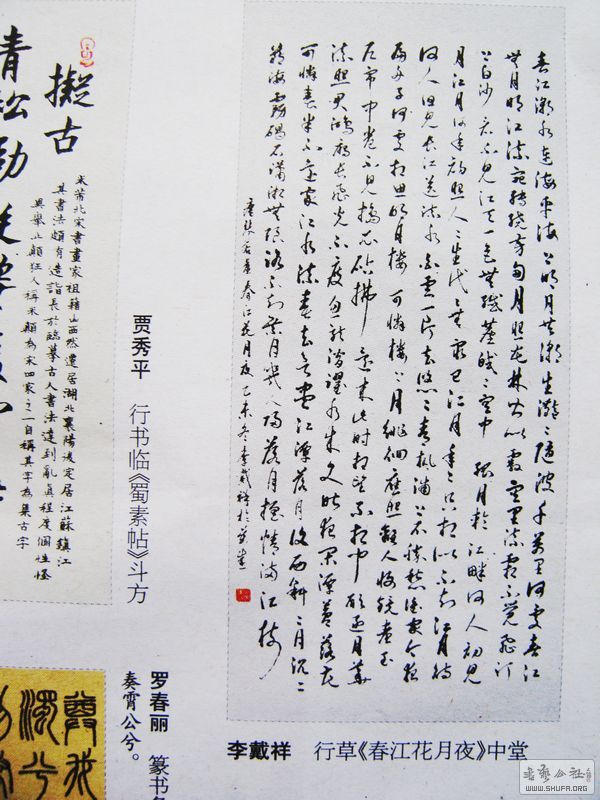 春江潮水连海平海上明月共潮生滟滟随波千万里何处春江
无月明江流宛转绕芳甸月照花林皆似霰空里流霜不觉飞汀
上白沙看不见江天一色无纤尘皎皎空中孤月轮江畔何人初见
月江月何年初照人人生代代无穷已江月年年只相似不知江月待
何人但见长江送流水白云一片去悠悠青枫浦上不胜愁谁家今夜
扁舟子何处相思明月楼可怜楼上月徘徊应照离人妆镜台玉
户帘中卷不见捣衣砧拂还来此时相望不相闻愿逐月华
流照君鸿雁长飞光不度鱼龙潜跃水成文昨夜闲潭梦落花
可怜春半不还家江水流春去欲尽江潭落月复西斜斜月沉沉
藏海雾碣石潇湘无限路不知乘月几人归落月摇情满江树
唐张若虚春江花月夜乙未冬李戴祥於
李戴祥 行草《春江花月夜》中堂
擬古
青松勁
米芾北宋書畫家祖籍山西然遷居湖北襄陽後定居江蘇鎮江
其書法頗有造詣長於臨摹古人書法達到亂真程度個性怪
異舉止顛狂人稱米顛為宋四家之一自稱其字為集古字
贾秀平 行书临《蜀素帖》斗方
罗春丽 篆书
奏霄公兮。
書藝公社
WWW.SHUFA.ORG